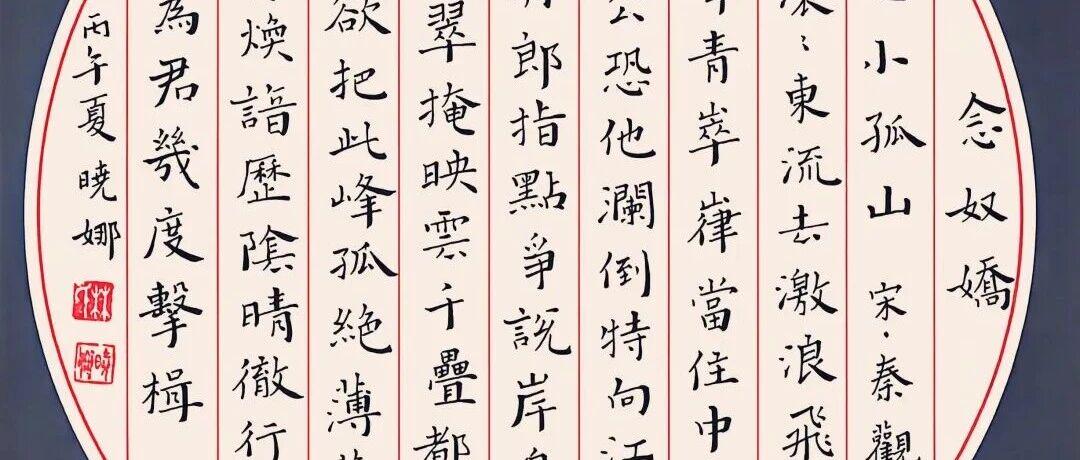 念奴嬌
小孤山 宋、秦觀
、東流去激浪飛
青崒嵂當住中
公恐他瀾倒特向江
郎指點爭說岸
翠掩映雲千疊都
欲把此峰孤絕薄
煥諳歷陰晴徹行
為君幾度擊楫
丙午夏曉娜